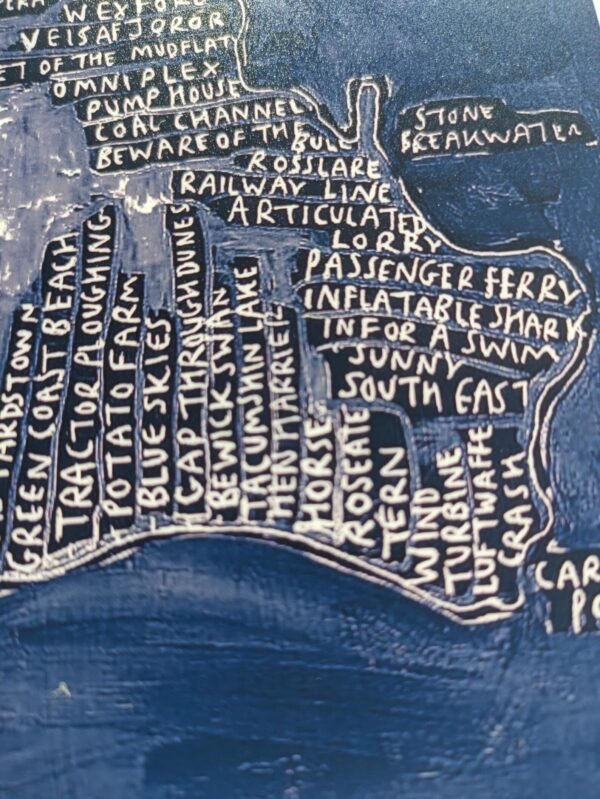 WEXFORD
VEISAFJOROR
OF THE MUDFLAT
OMNIPLEX
PUMP HOUSE
COAL CHANNEL
BEWARE OF THE BULL
ROSSLARE
RAILWAY LINE
ARTICULATED
LORRY
PASSENGER FERRY
INFLATABLE SHARK
IN FOR A SWIM
SUNNY
SOUTH EAST
STONE
BREAKWATER
GREEN COAST BEACH
TRACTOR PLOUGHING
POTATO FARM
BLUE SKIES
GAP THROUGH DUNES
BEWICK SWAN
TACUMSHIN LAKE
HEN HARRIER
HORSE
ROSEATE
TERN
WIND
TURBINE
LUFTWAFFE
CRASH
CAR